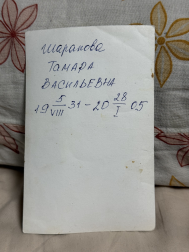 Шарапова
Тамара
Васильевна
19 5/VIII 31 – 20 28/I 05